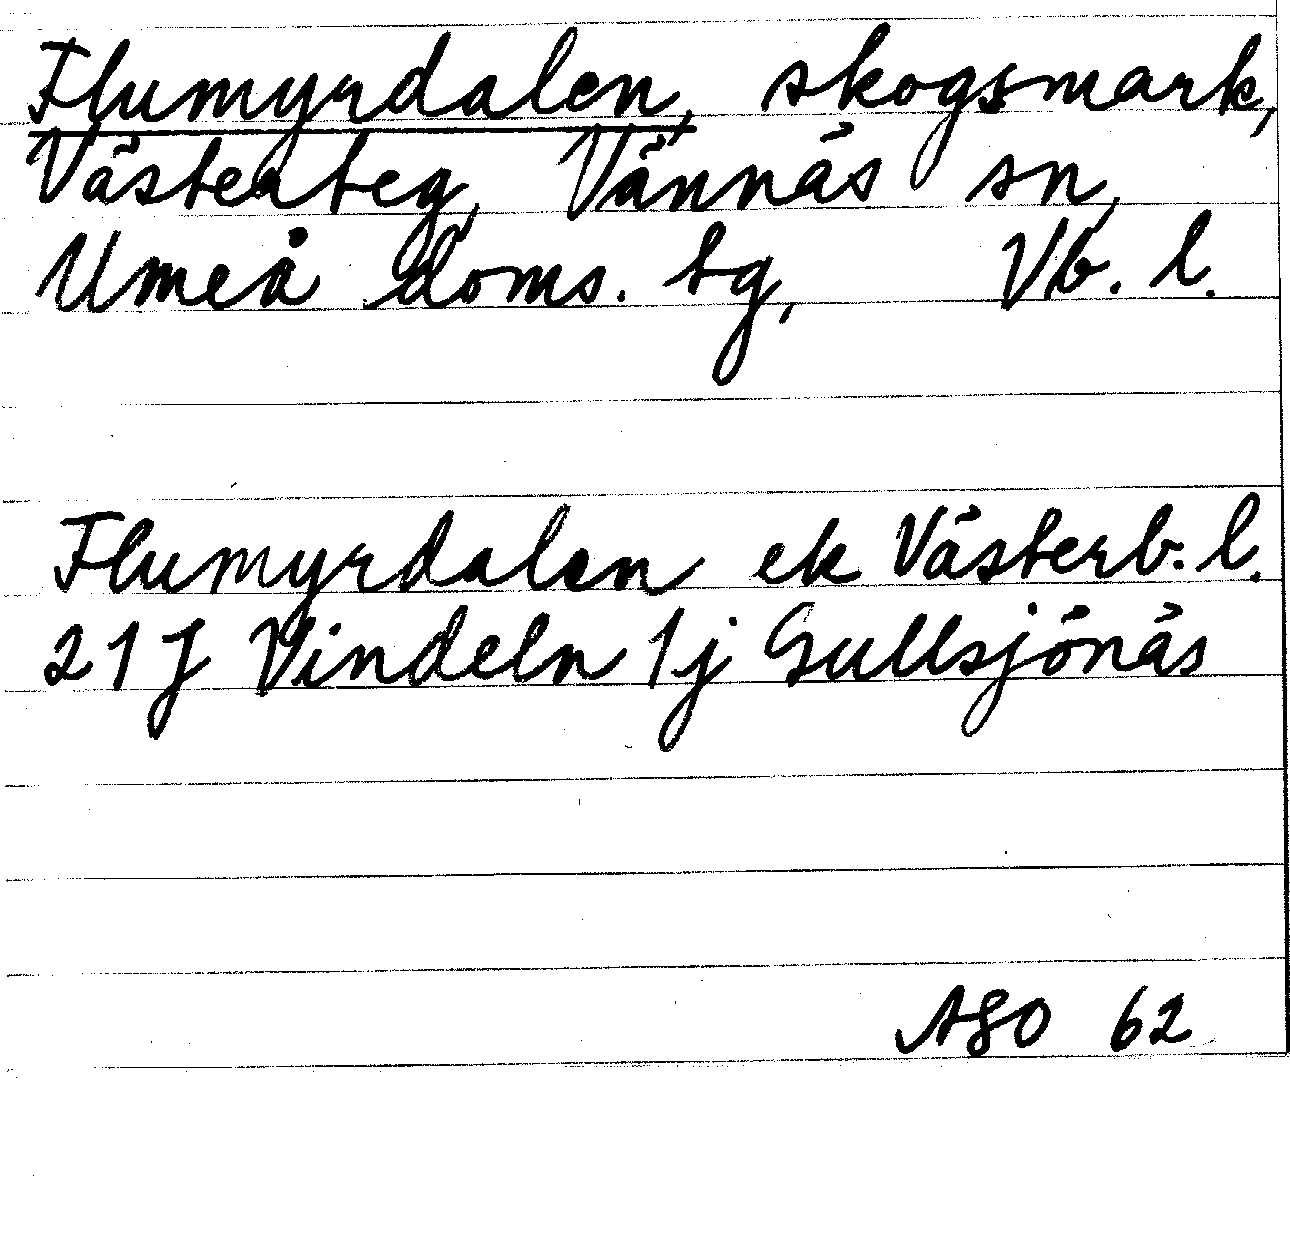 Flumyrdalen, skogsmark,
Västerteg, Vännäs sn,
Umeå doms. tg, Vb. l.
Flumyrdalen ek Västerb. l.
21 J Vindeln 1j Gullsjönäs
ASO 62